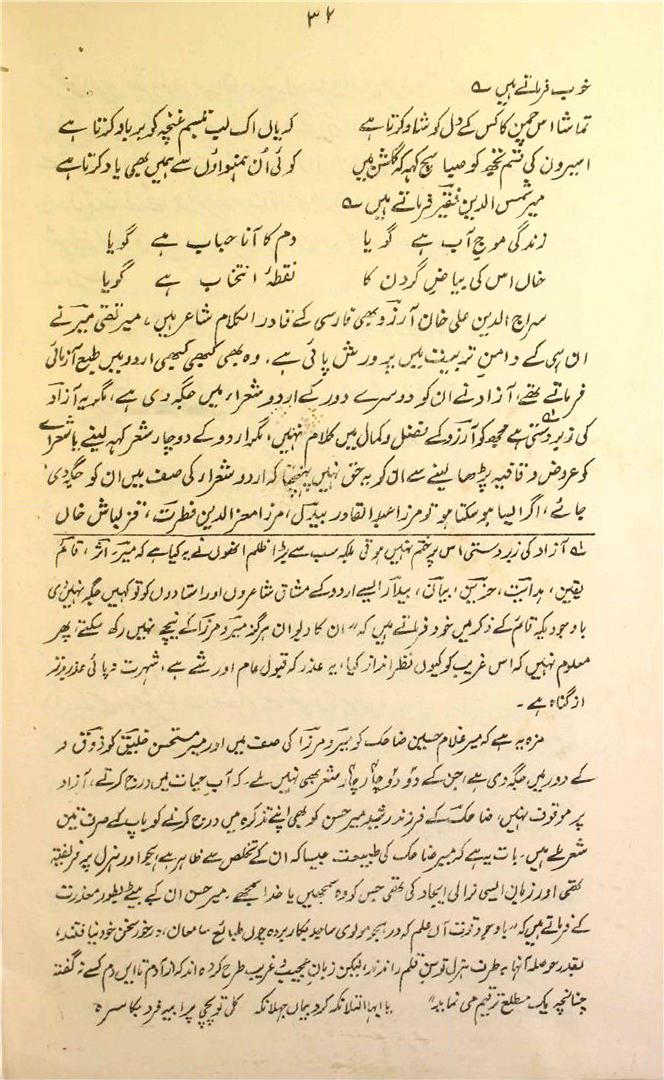 ۳۲
خوب فرماتے ہیں ؎
تماشا اس چمن کا کس کے دل کو شاد کرتا ہے کہ یاں اک لب تبسم غنچہ کو برباد کرتا ہے
اسیروں کی قسم تجھ کو صبا سچ کہہ کہ گلشن میں کوئی اُن ہمنواؤں سے ہمیں بھی یاد کرتا ہے
میر شمس الدین فقیر فرماتے ہیں ؎
زندگی موجِ آب ہے گویا دم کا آنا حباب ہے گویا
خال اس کی بیاضِ گردن کا نقطۂ انتخاب ہے گویا
سراج الدین علی خان آرزو بھی فارسی کے قادر الکلام شاعر ہیں، میر تقی میر نے
ان ہی کے دامنِ تربیت میں پرورش پائی ہے۔ وہ بھی کبھی کبھی اردو میں طبع آزمائی
فرماتے تھے، آزاد نے ان کو دوسرے دور کے اردو شعراء میں جگہ دی ہے، مگر یہ آزاد
کی زبردستی ہے مجھ کو آرزو کے فضل و کمال میں کلام نہیں، مگر اردو کے دو چار شعر کہہ لینے یا شعراء
کو عروض و قافیہ پڑھا لینے سے ان کو یہ حق نہیں پہنچتا کہ اردو شعراء کی صف میں ان کو جگہ دی
جائے، اگر ایسا ہو سکتا ہو تو مرزا عبد القادر بیدل، مرزا معز الدین فطرت، قزلباش خاں
لہ آزاد کی زبردستی اس پر ختم نہیں ہوتی بلکہ سب سے بڑا ظلم انھوں نے یہ کیا ہے کہ میر اثر، قائم
یقین، ہدایت، حزیں، بیان، بیدار ایسے اردو کے مشاق شاعروں اور استادوں کو تو کہیں جگہ نہیں دی
باوجودیکہ قائم کے ذکر میں خود فرماتے ہیں کہ "ان کا دیوان ہرگز میر و مرزا کے نیچے نہیں رکھ سکتے، پھر
معلوم نہیں کہ اس غریب کو کیوں نظر انداز کیا، یہ عذر کہ قبول عام اور شے ہے، شہرت نہ پائی عذر بدتر
از گناہ ہے۔
مزہ یہ ہے کہ میر غلام حسین ضاحک کو میر و مرزا کی صف میں اور میر مستحسن خلیق کو ذوق و
کے دور میں جگہ دی ہے، جن کے دو دو چار چار شعر بھی نہیں ملے۔ کہ آب حیات میں درج کرتے، آزاد
پر موقوف نہیں، ضاحک کے فرزند رشید میر حسن کو بھی اپنے تذکرہ میں درج کرنے کو باپ کے صرف تین
شعر ملے ہیں۔ بات یہ ہے کہ میر ضاحک کی طبیعت جیسا کہ ان کے تخلص سے ظاہر ہے ہجو اور ہزل پر فریفتہ
تھی اور زبان ایسی نرالی ایجاد کی تھی جس کو وہ سمجھیں یا خدا سمجھے۔ میر حسن ان کے بیٹے بطور معذرت
کے فرماتے ہیں کہ "باوجود قوت آں علم کہ در ہجو مولوی ساجد بکار بردہ چوں طبائع سامعان، درخور سخن خود نیافتند،
بقدر حوصلہ آنہا بہ طرف ہزل توسن قلم راندند، لیکن زبان عجیب و غریب طرح کردہ اند کہ از آدم تا ایں دم کسے نگفتہ
چنانچہ یک مطلع ترقیم می نماید"